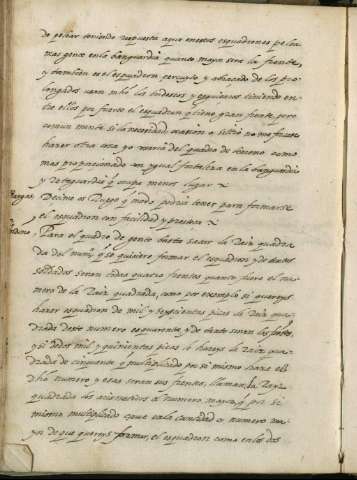 de pelear teniendo respuesta a que en estos esquadrones pelea
mas gente en la banguardia quanto mayor sera la frente,
y tambien es el esquadron cercado y abraçado de los pro
longados
tre ellos por fuerte el esquadron q tiene gran frente, pero
comun mente si la necesidad, ocasion o sitio no me fuerça
hazer otra cosa yo usaria del quadro de terreno como
mas proporcionado en ygual fortaleza en la banguardia
y Retaguardia q ocupa menos lugar
Vargas Decime os Ruego q modo podria tener para formarse
el esquadron con facilidad y presteza
Para el quadro de gente basta sacar la Raiz quadra
da del num.º q se quisiere formar el esquadron y de tantos
soldados seran todas quatro frentes quanto fuere el nu
mero de la Raiz quadrada, como por exemplo si quereys
hazer esquadron de mil y seyscientas picas la Raiz qua
drada deste numero es quarenta, y de tanto seran las frētes,
y si de dos mil y quinientas picas le hareys la Raiz qua
drada de cinquenta q multiplicado por si mismo hara el
dho numero y esas seran sus frentes, llaman la Rayz
quadrada los arismeticos al numero mayor q por si
mismo multiplicado yguala la cantidad o numero ma
yor de que quereys formar el esquadron como en los dos